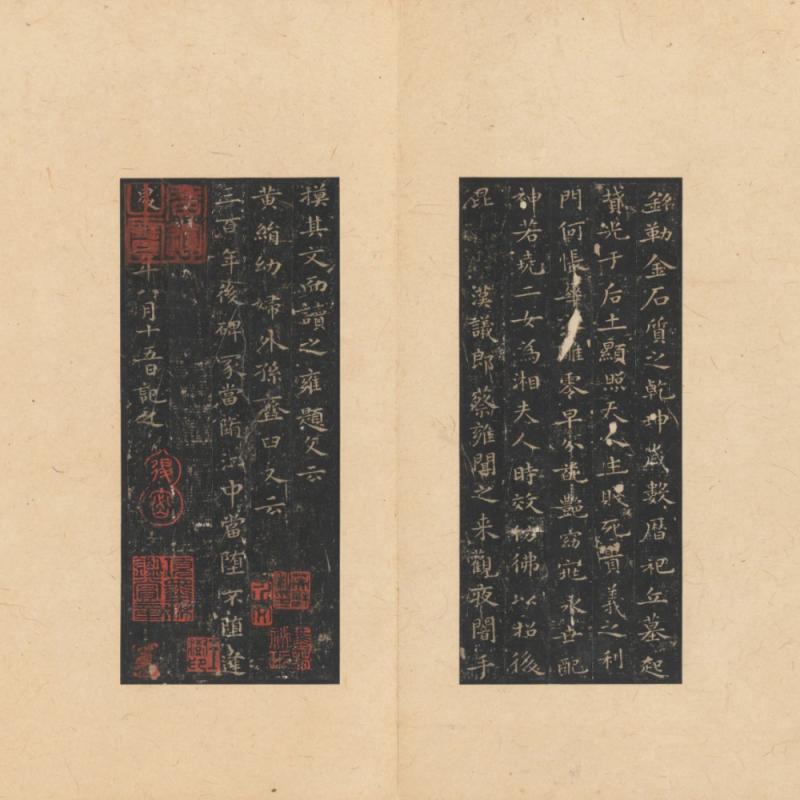 銘勒金石質之乾坤歲數曆祀丘墓起
墳光于后土顯照天人生賤死貴義之利
門何悵華落雕零早分葩艷窈窕永世配
神若堯二女為湘夫人時效彷彿以招後
昆 漢議郎蔡雍聞之来觀夜闇手
摸其文而讀之雍題文云
黃絹幼婦外孫韲臼又云
三百年後碑冢當墮江中當墮不墮逢
二年八月十五日記之